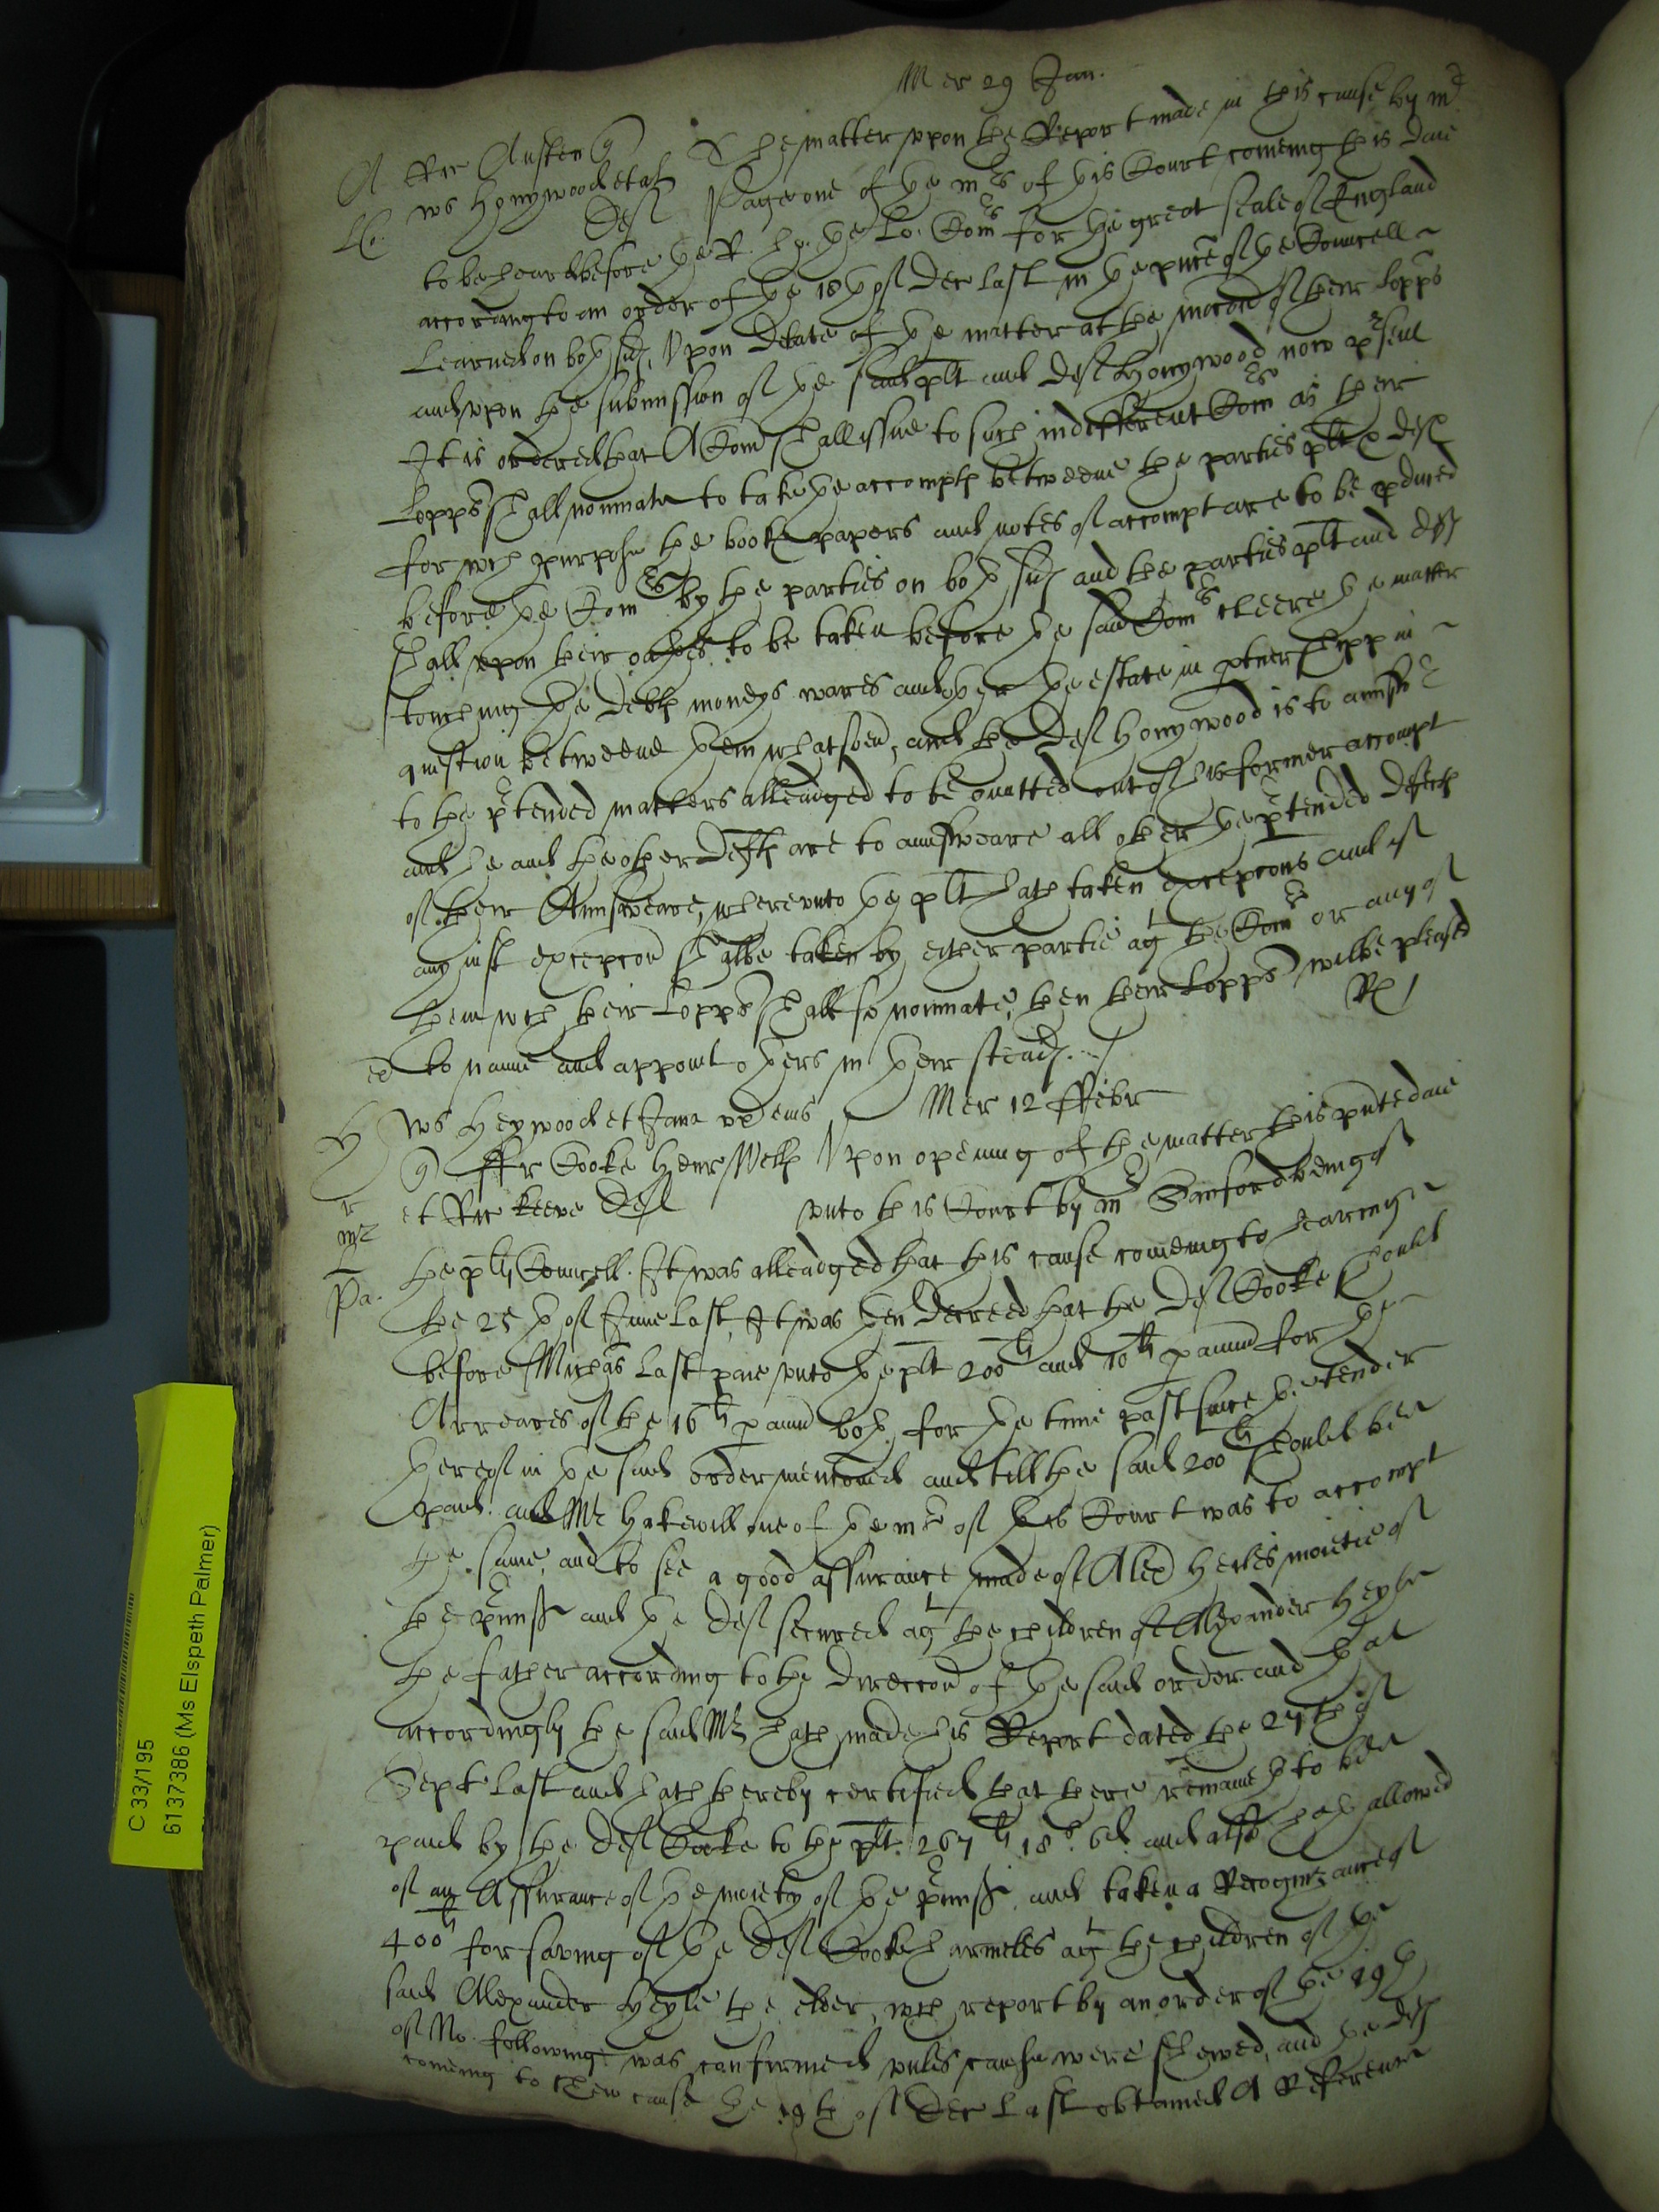 Mer 29 Jan.
A Ric Austen q The matter vpon the Report made in this cause by mr
Lo. Ws Honywood et al Deft Page one of the mrs of this Court comeing this daie
to be heard before the R. ho. the Lo. Comrs for the great seale of England
according to an order of the 18th of Dec last in the pnce of the Councell
Learned on both sids, Vpon debate of the matter at the mocon of their Lopps
and vpon the submission of the said plt and deft Honywood now psent
It is ordered that A Com shall issue to such indefferent Comrs as their
Lopps shall nominate to take the accompts betweene the parties plt & deft
for wch purpose the books papers and notes of accompt are to be pduced
before the Comrs by the parties on both sids and the parties plt and deft
shall vpon their oathes to be taken before the said Comrs cleere the matter
touching the debts moneys wares and other the estate in ptnershipp in
question betweene them whatsoevr, and the Deft Honywood is to answr
to the ptended matters alleadged to be omitted out of his former accompt
and he and the other Defts are to aunsweare all other the ptended defects
of their Aunsweare, wherevnto the plt hath taken excepcons and if
any iust excepcon shalbe taken by either partie agt the Comrs or any of
them wch their Lopps shall so nominate, then their Lopps wilbe pleased
to name and appoint others in their steads. Rx
Mer 12 Febr
H Ws Heywood et Jana vx eius
q ffr Cooke Henr Wells Vpon opening of the matter this pnte daie
et Ric Keeve Deft vnto this Court by mr Sanford being of
Pa. the plts Councell. It was alleadged that this cause comeing to heareing
the 25th of June last, It was then decreed that the Deft Cooke should
before Michas last paie vnto the plt 200li and 10li p annu for the
Arreares of the 16li p annu both for the time past since the tender
thereof in the said order mencoed and till the said 200li should bee
paid. and Mr Hakewill one of the mrs of this Court was to accompt
the same, and to see a good assurance made of Alexd Heiles moietie of
the pmiss and the Deft secured agt the children of Alexander Heyle
the father according to the direccon of the said order. and that
accordingly the said Mr hath made his Report dated the 27th of
Sept last and hath thereby certified that there remaineth to bee
paid by the Deft Cooke to the plt. 267li 18s. 6d. and also hath allowed
of an Assurance of the moiety of the pmiss, and taken a Recognizance of
400li for saving of the Deft Cooke harmeles agt the children of the
said Alexander Heyle the elder, wch report by an order of the 19th
of No. following was confirmed vnles cause were shewed, and the deft
comeing to shew cause the 19th of Dec last obtained A Reference
C 33/195
6137386 (Ms Elspeth Palmer)